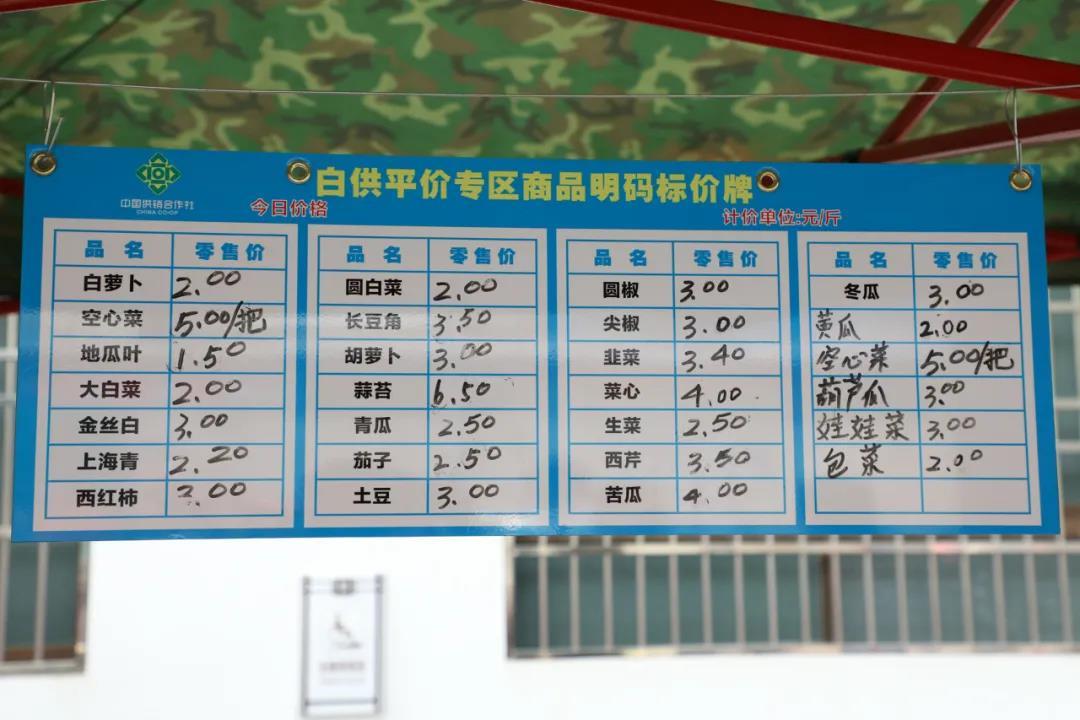 白供平价专区商品明码标价牌
中国供销合作社
CHINA CO-OP
今日价格
计价单位:元/斤
品名 零售价
白萝卜 2.00
空心菜 5.00/把
地瓜叶 1.50
大白菜 2.00
金丝白 3.00
上海青 2.20
西红柿 3.00
品名 零售价
圆白菜 2.00
长豆角 3.50
胡萝卜 3.00
蒜苔 6.50
青瓜 2.50
茄子 2.50
土豆 3.00
品名 零售价
圆椒 3.00
尖椒 3.00
韭菜 3.40
菜心 4.00
生菜 2.50
西芹 3.50
苦瓜 4.00
品名 零售价
冬瓜 3.00
黄瓜 2.00
空心菜 5.00/把
葫芦瓜 3.00
娃娃菜 3.00
包菜 2.00